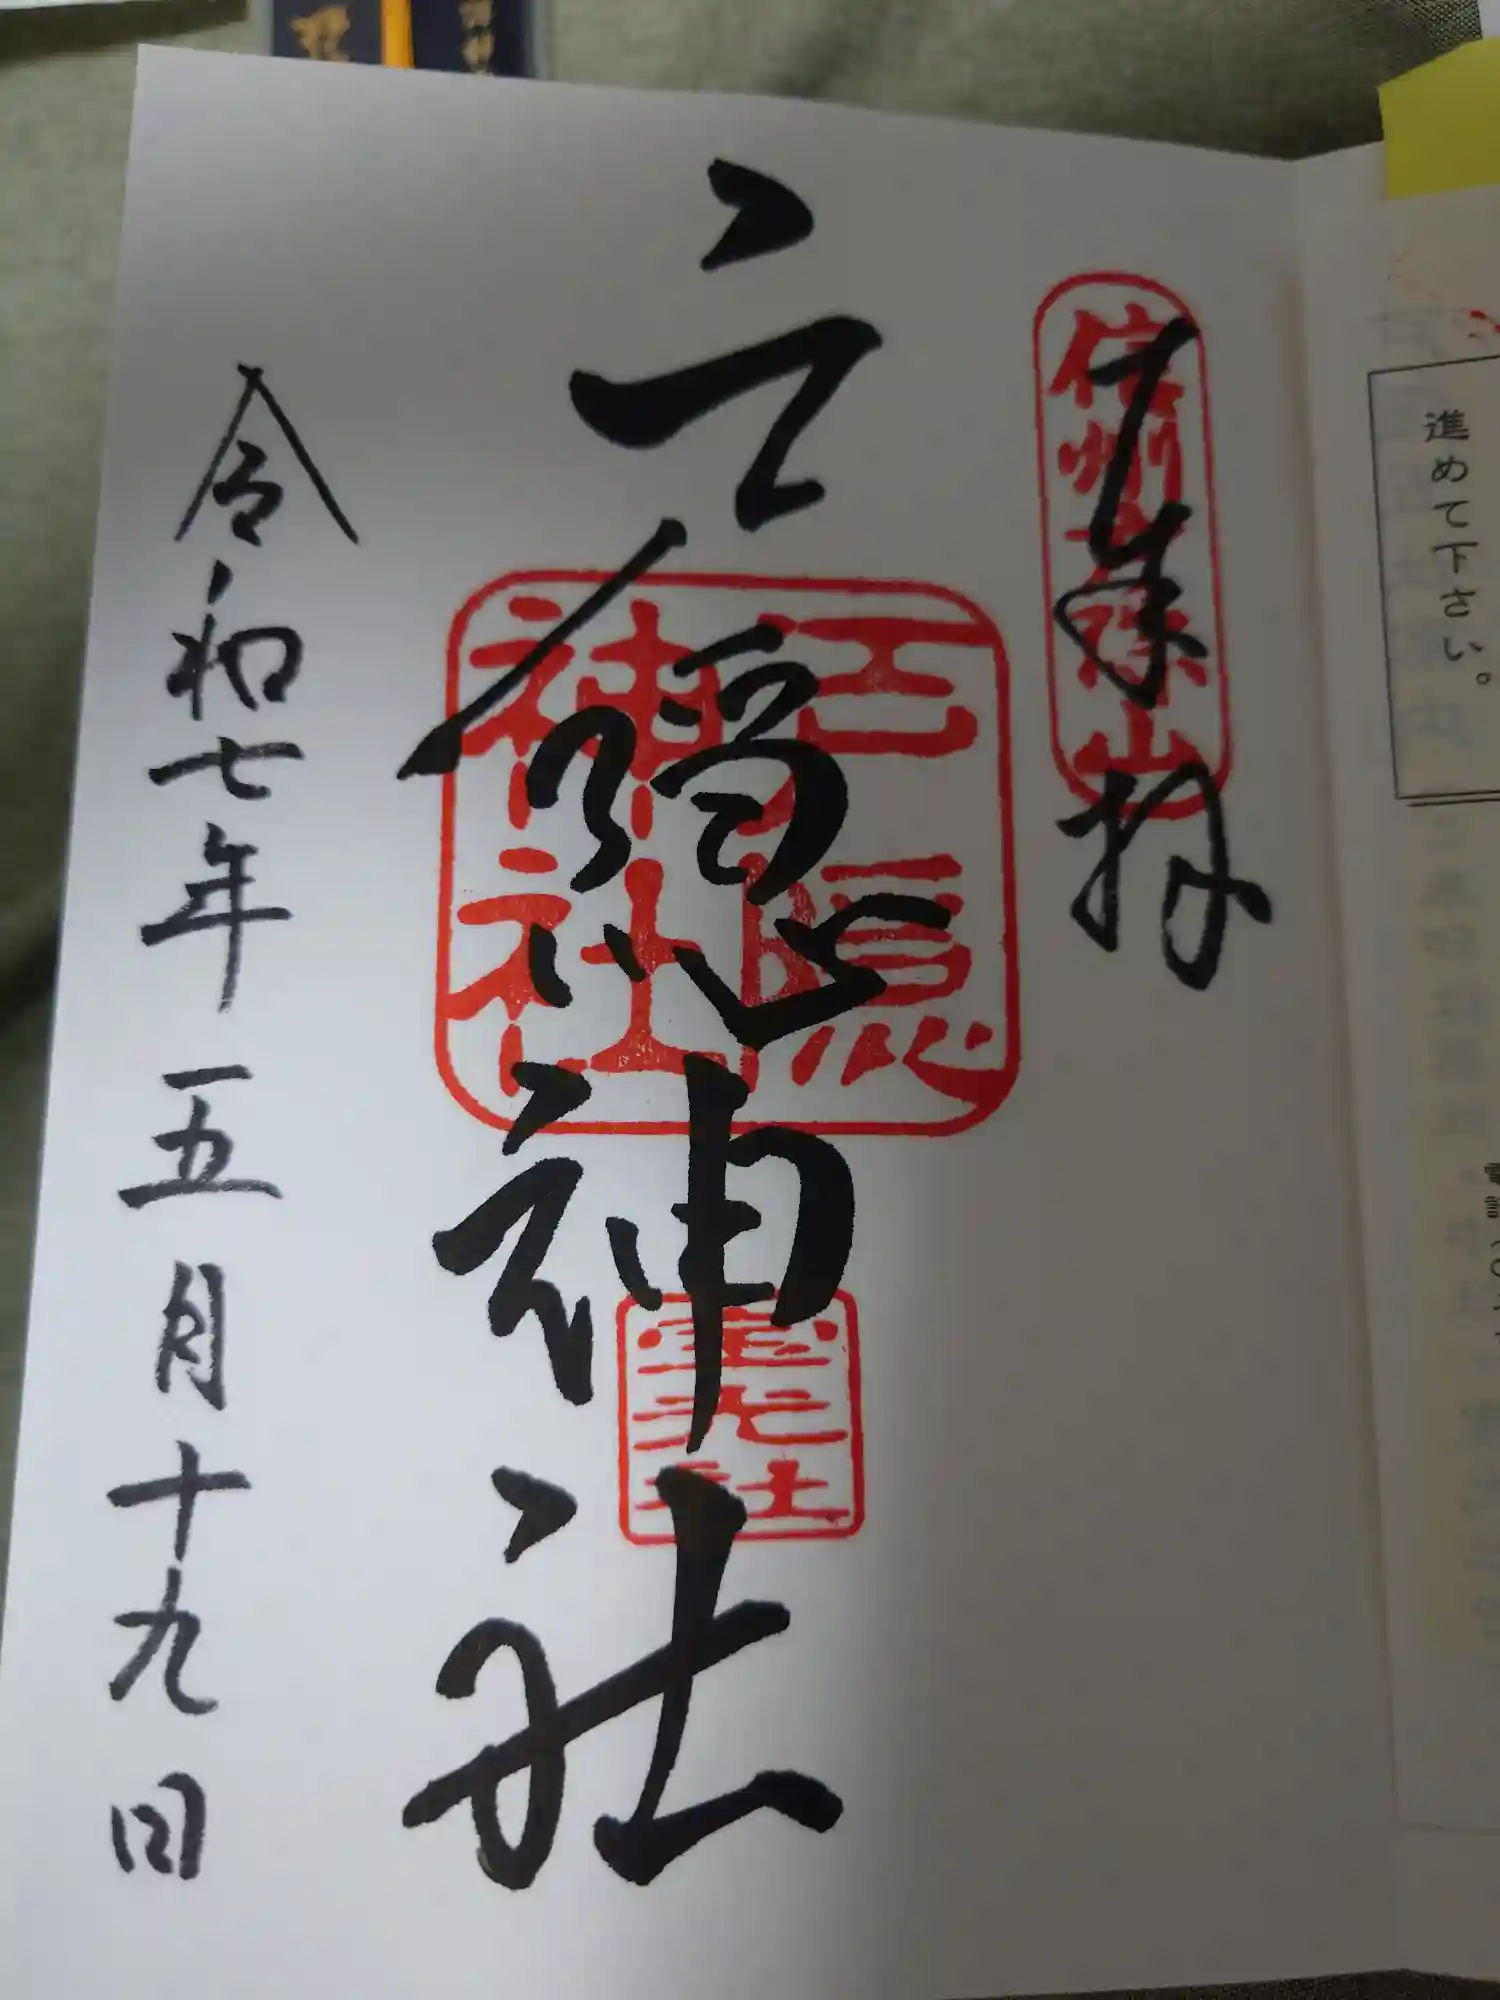 進めて下さい。
奉拝
信州戸隠山
戸隠神社
戸隠
神社
宝光社
令和七年五月十九日